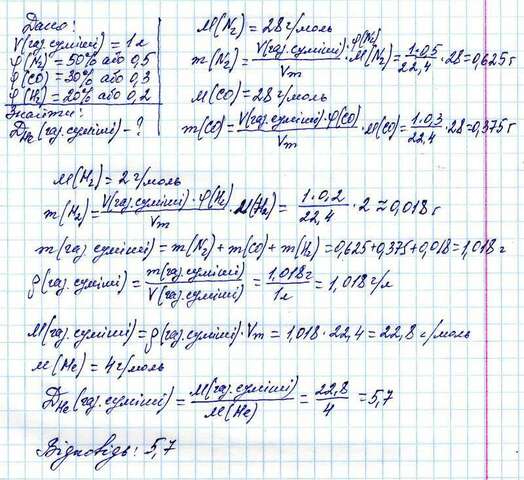 Дано:
V(газ. суміші) = 1л
φ(N₂) = 50% або 0,5
φ(CO) = 30% або 0,3
φ(H₂) = 20% або 0,2
Знайти:
D_He(газ. суміші) - ?
M(N₂) = 28 г/моль
m(N₂) = V(газ. суміші)·φ(N₂) / Vm · M(N₂) = 1·0,5 / 22,4 · 28 = 0,625 г
M(CO) = 28 г/моль
m(CO) = V(газ. суміші)·φ(CO) / Vm · M(CO) = 1·0,3 / 22,4 · 28 = 0,375 г
M(H₂) = 2 г/моль
m(H₂) = V(газ. суміші)·φ(H₂) / Vm · M(H₂) = 1·0,2 / 22,4 · 2 ≈ 0,018 г
m(газ. суміші) = m(N₂) + m(CO) + m(H₂) = 0,625 + 0,375 + 0,018 = 1,018 г
ρ(газ. суміші) = m(газ. суміші) / V(газ. суміші) = 1,018 г / 1л = 1,018 г/л
M(газ. суміші) = ρ(газ. суміші)·Vm = 1,018 · 22,4 = 22,8 г/моль
M(He) = 4 г/моль
D_He(газ. суміші) = M(газ. суміші) / M(He) = 22,8 / 4 = 5,7
Відповідь: 5,7